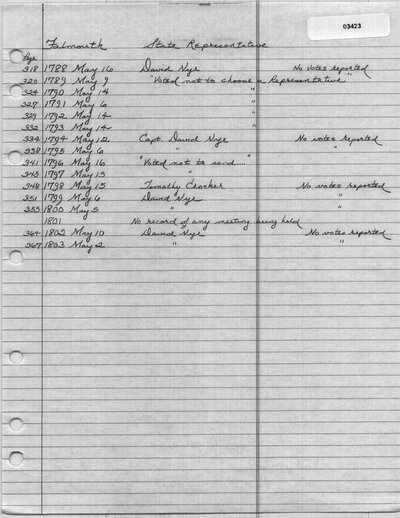 03423
Falmouth State Representative
Page
318 1788 May 16 David Nye No votes reported
320 1789 May 9 "Voted not to choose a Representative"
324 1790 May 14 "
327 1791 May 6 "
329 1792 May 14 "
332 1793 May 14 "
334 1794 May 12 Capt. David Nye No votes reported
338 1795 May 6 " "
341 1796 May 16 "Voted not to send...."
345 1797 May 15 "
348 1798 May 15 Timothy Crocker No votes reported
351 1799 May 6 David Nye "
355 1800 May 5 " "
1801 No record of any meeting being held
364 1802 May 10 David Nye No votes reported
367 1803 May 2 " "